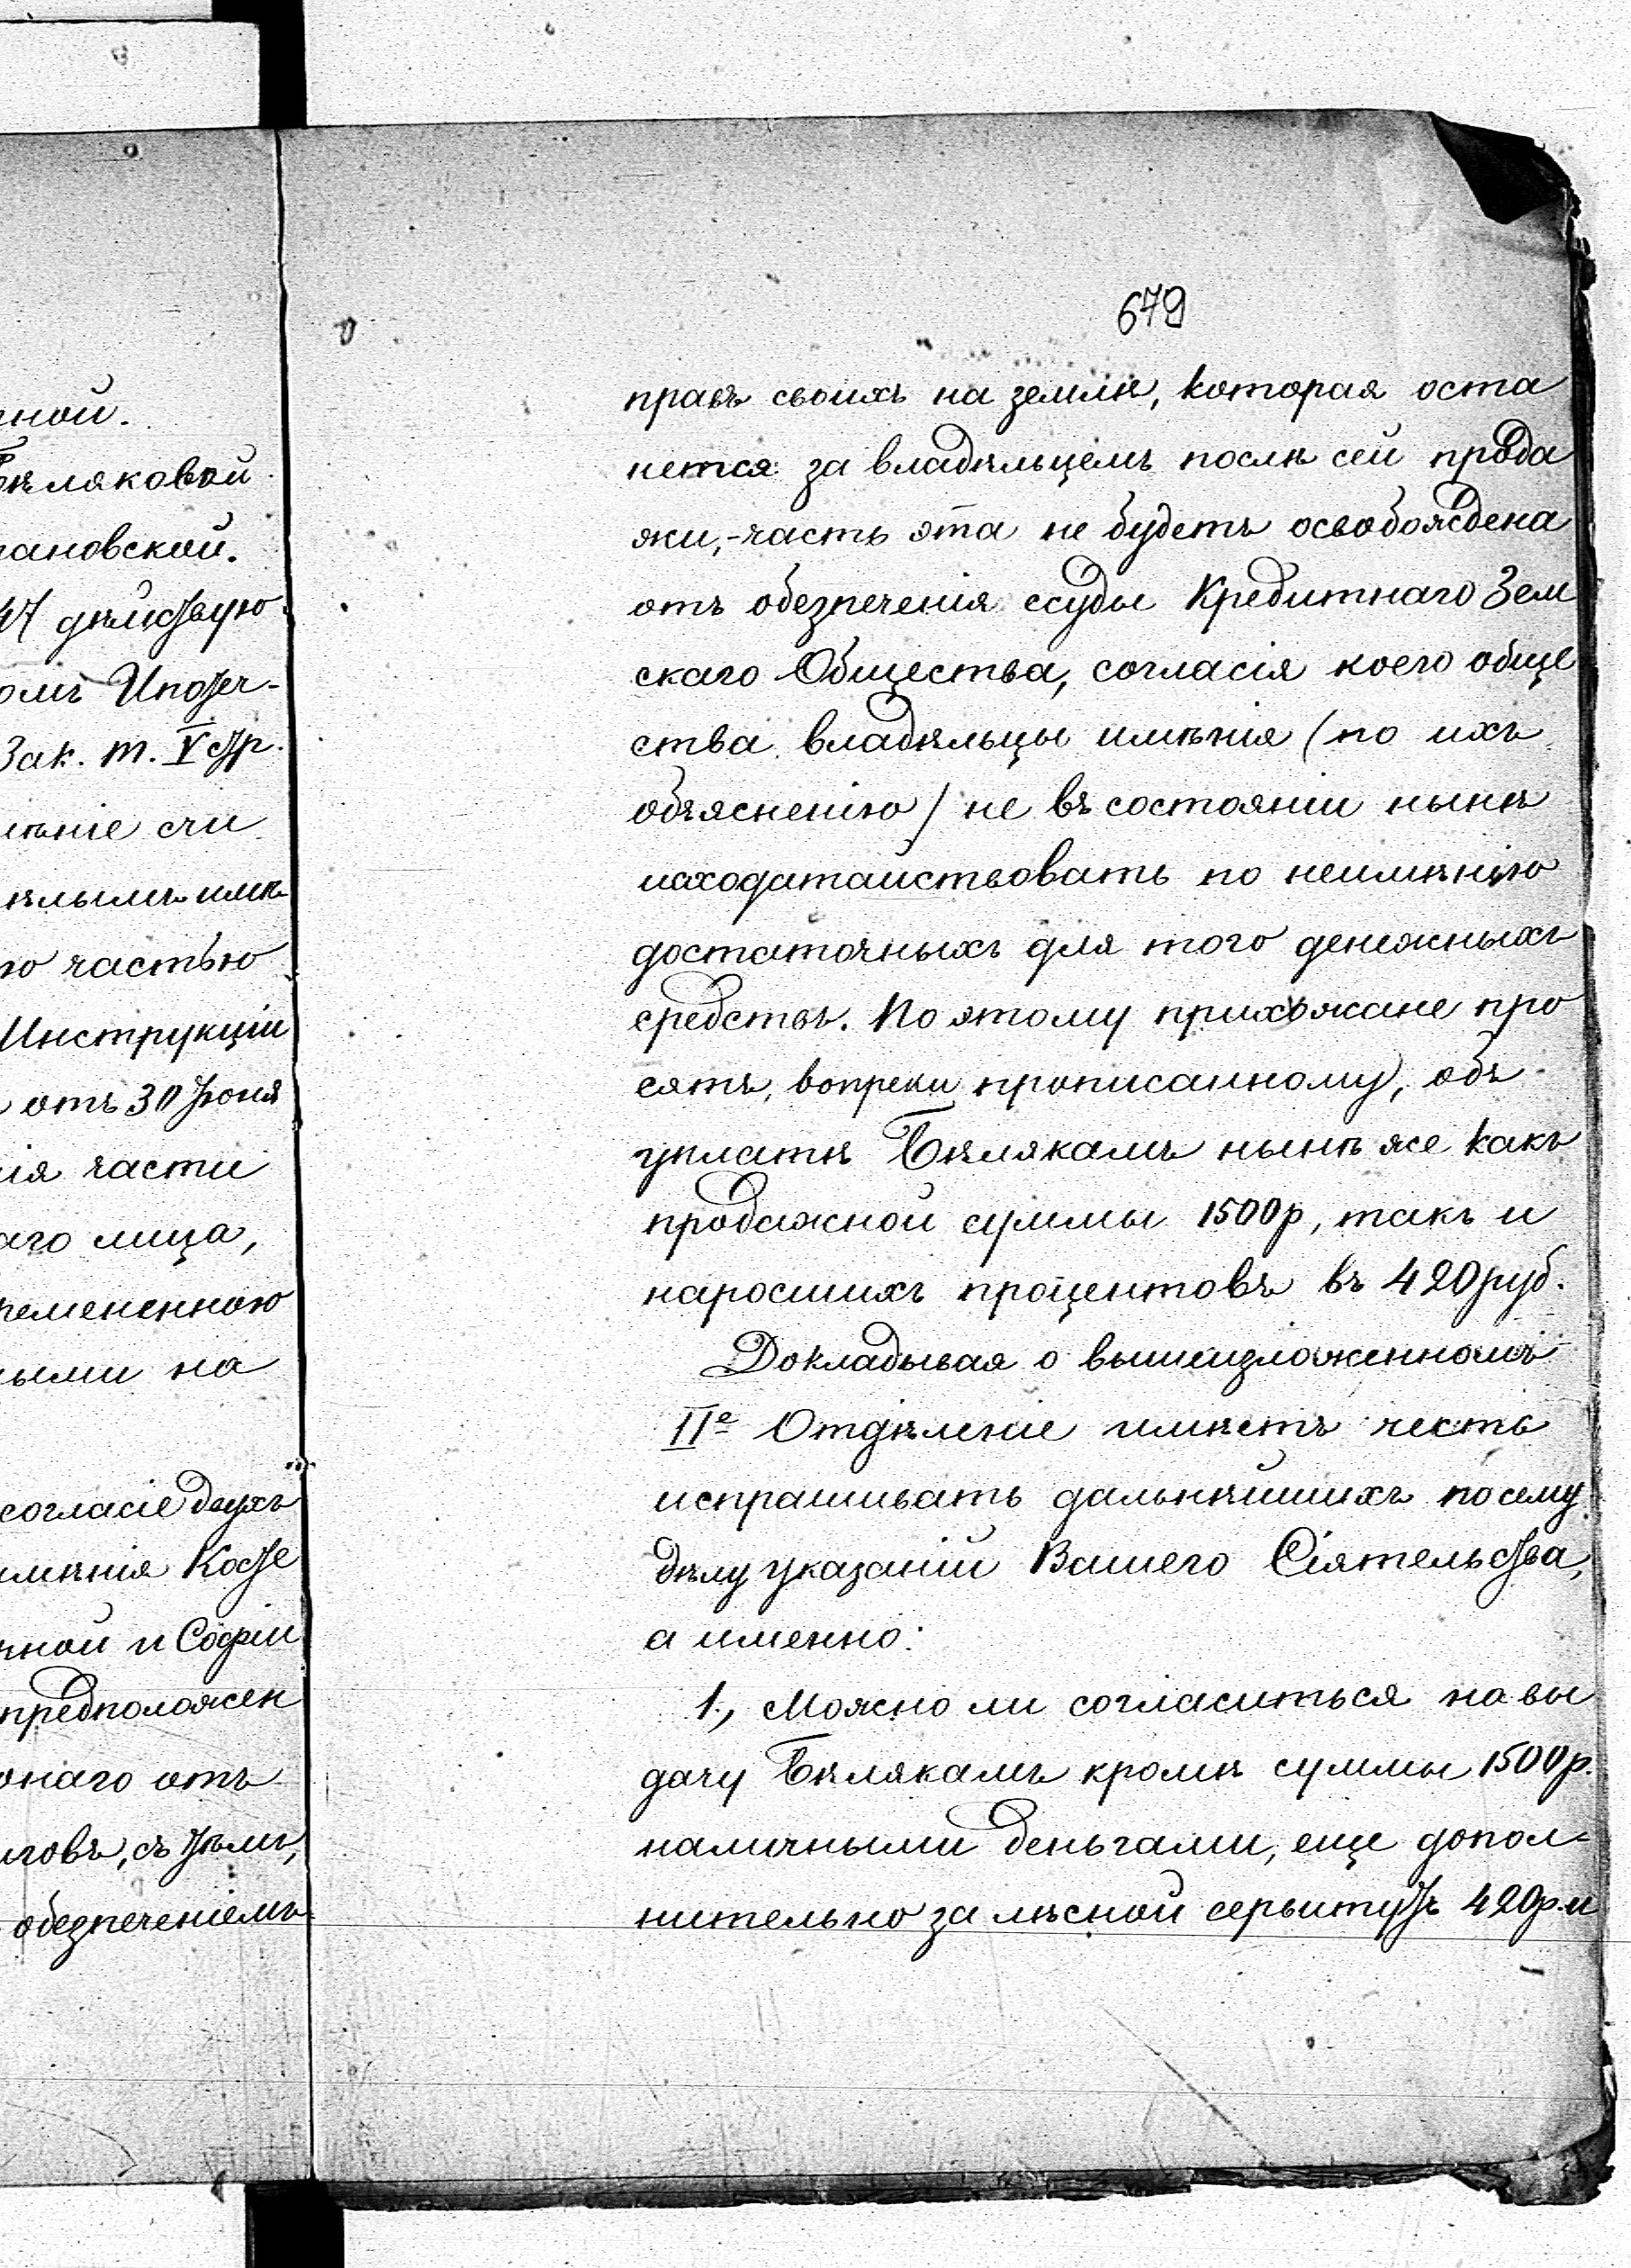 ной.
Бѣляковой
ановской.
47 дѣйствую
омъ Ипотеч-
Зак. т. V стр.
мѣніе счи
ѣлымъ имѣ
ю частью
Инструкціи
отъ 30 Іюня
ія части
аго лица,
ременною
ыми на
согласіе двухъ
имѣнія Косте
ной и Софіи
предположен
онаго отъ
говъ, съ тѣмъ,
обезпеченіемъ
679
правъ своихъ на землѣ, которая оста
нется за владѣльцемъ послѣ сей прода
жи,-часть эта не будетъ освобождена
отъ обезпеченія ссуды Кредитнаго Зем
скаго Общества, согласія коего обще
ства владѣльцы имѣнія (по ихъ
объясненію) не въ состояніи нынѣ
исходатайствовать по неимѣнію
достаточныхъ для того денежныхъ
средствъ. По этому прихожане про
сятъ, вопреки прописанному, объ
уплатѣ Бѣлякамъ нынѣ же какъ
продажной суммы 1500р, такъ и
наросшихъ процентовъ въ 420руб.
Докладывая о вышеизложенномъ
IIе Отдѣленіе имѣетъ честь
испрашивать дальнѣйшихъ по сему
дѣлу указаній Вашего Сіятельства,
а именно:
1., Можно ли согласиться на вы
дачу Бѣлякамъ кромѣ суммы 1500р.
наличными деньгами, еще допол-
нительно за лѣсной сервитутъ 420р. и